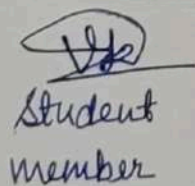 Student
member